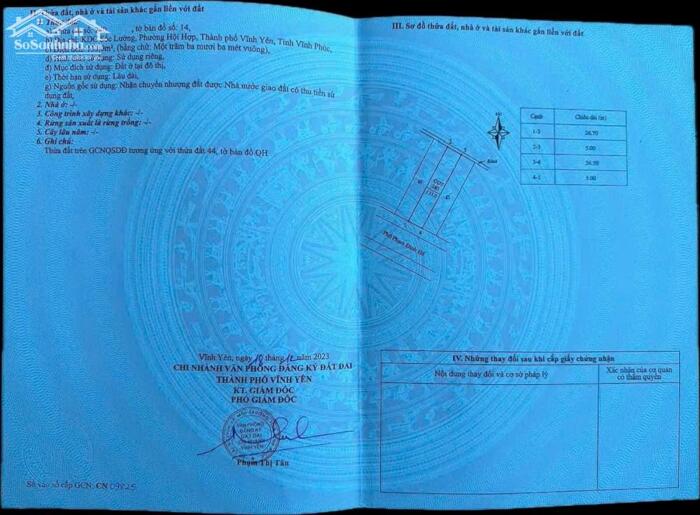 SoSanhnha.com
II. Thửa đất, nhà ở và tài sản khác gắn liền với đất
, tờ bản đồ số: 14,
Lường, Phường Hội Hợp, Thành phố Vĩnh Yên, Tỉnh Vĩnh Phúc,
(bằng chữ: Một trăm ba mươi ba mét vuông),
d) Hình thức sử dụng: Sử dụng riêng,
đ) Mục đích sử dụng: Đất ở tại đô thị,
e) Thời hạn sử dụng: Lâu dài,
g) Nguồn gốc sử dụng: Nhận chuyển nhượng đất được Nhà nước giao đất có thu tiền sử
dụng đất,
2. Nhà ở: -/-
3. Công trình xây dựng khác: -/-
4. Rừng sản xuất là rừng trồng: -/-
5. Cây lâu năm: -/-
6. Ghi chú:
Thửa đất trên GCNQSDĐ tương ứng với thửa đất 44, tờ bản đồ QH
Vĩnh Yên, ngày 10 tháng 12 năm 2023
CHI NHÁNH VĂN PHÒNG ĐĂNG KÝ ĐẤT ĐAI
THÀNH PHỐ VĨNH YÊN
KT. GIÁM ĐỐC
PHÓ GIÁM ĐỐC
VĂN PHÒNG
ĐĂNG KÝ
ĐẤT ĐAI
CHI NHÁNH
VĨNH YÊN
Phạm Thị Tân
Số vào sổ cấp GCN: CN 09825
III. Sơ đồ thửa đất, nhà ở và tài sản khác gắn liền với đất
Cạnh Chiều dài (m)
1-2 26.70
2-3 5.00
3-4
4-1 5.00
ODT
Phố Phan Đình
IV. Những thay đổi sau khi cấp giấy chứng nhận
Nội dung thay đổi và cơ sở pháp lý
Xác nhận của cơ quan
có thẩm quyền